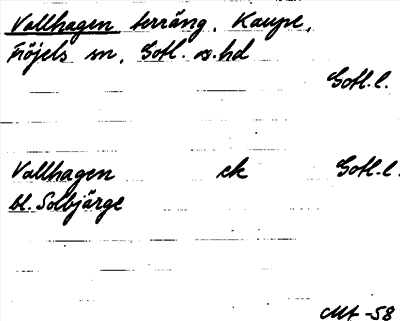 Vallhagen terräng, Kaupe,
Fröjels sn, Gotl. s. hd
Gotl. l.
Vallhagen ek Gotl. l.
bl. Solbjärge
Mt -58